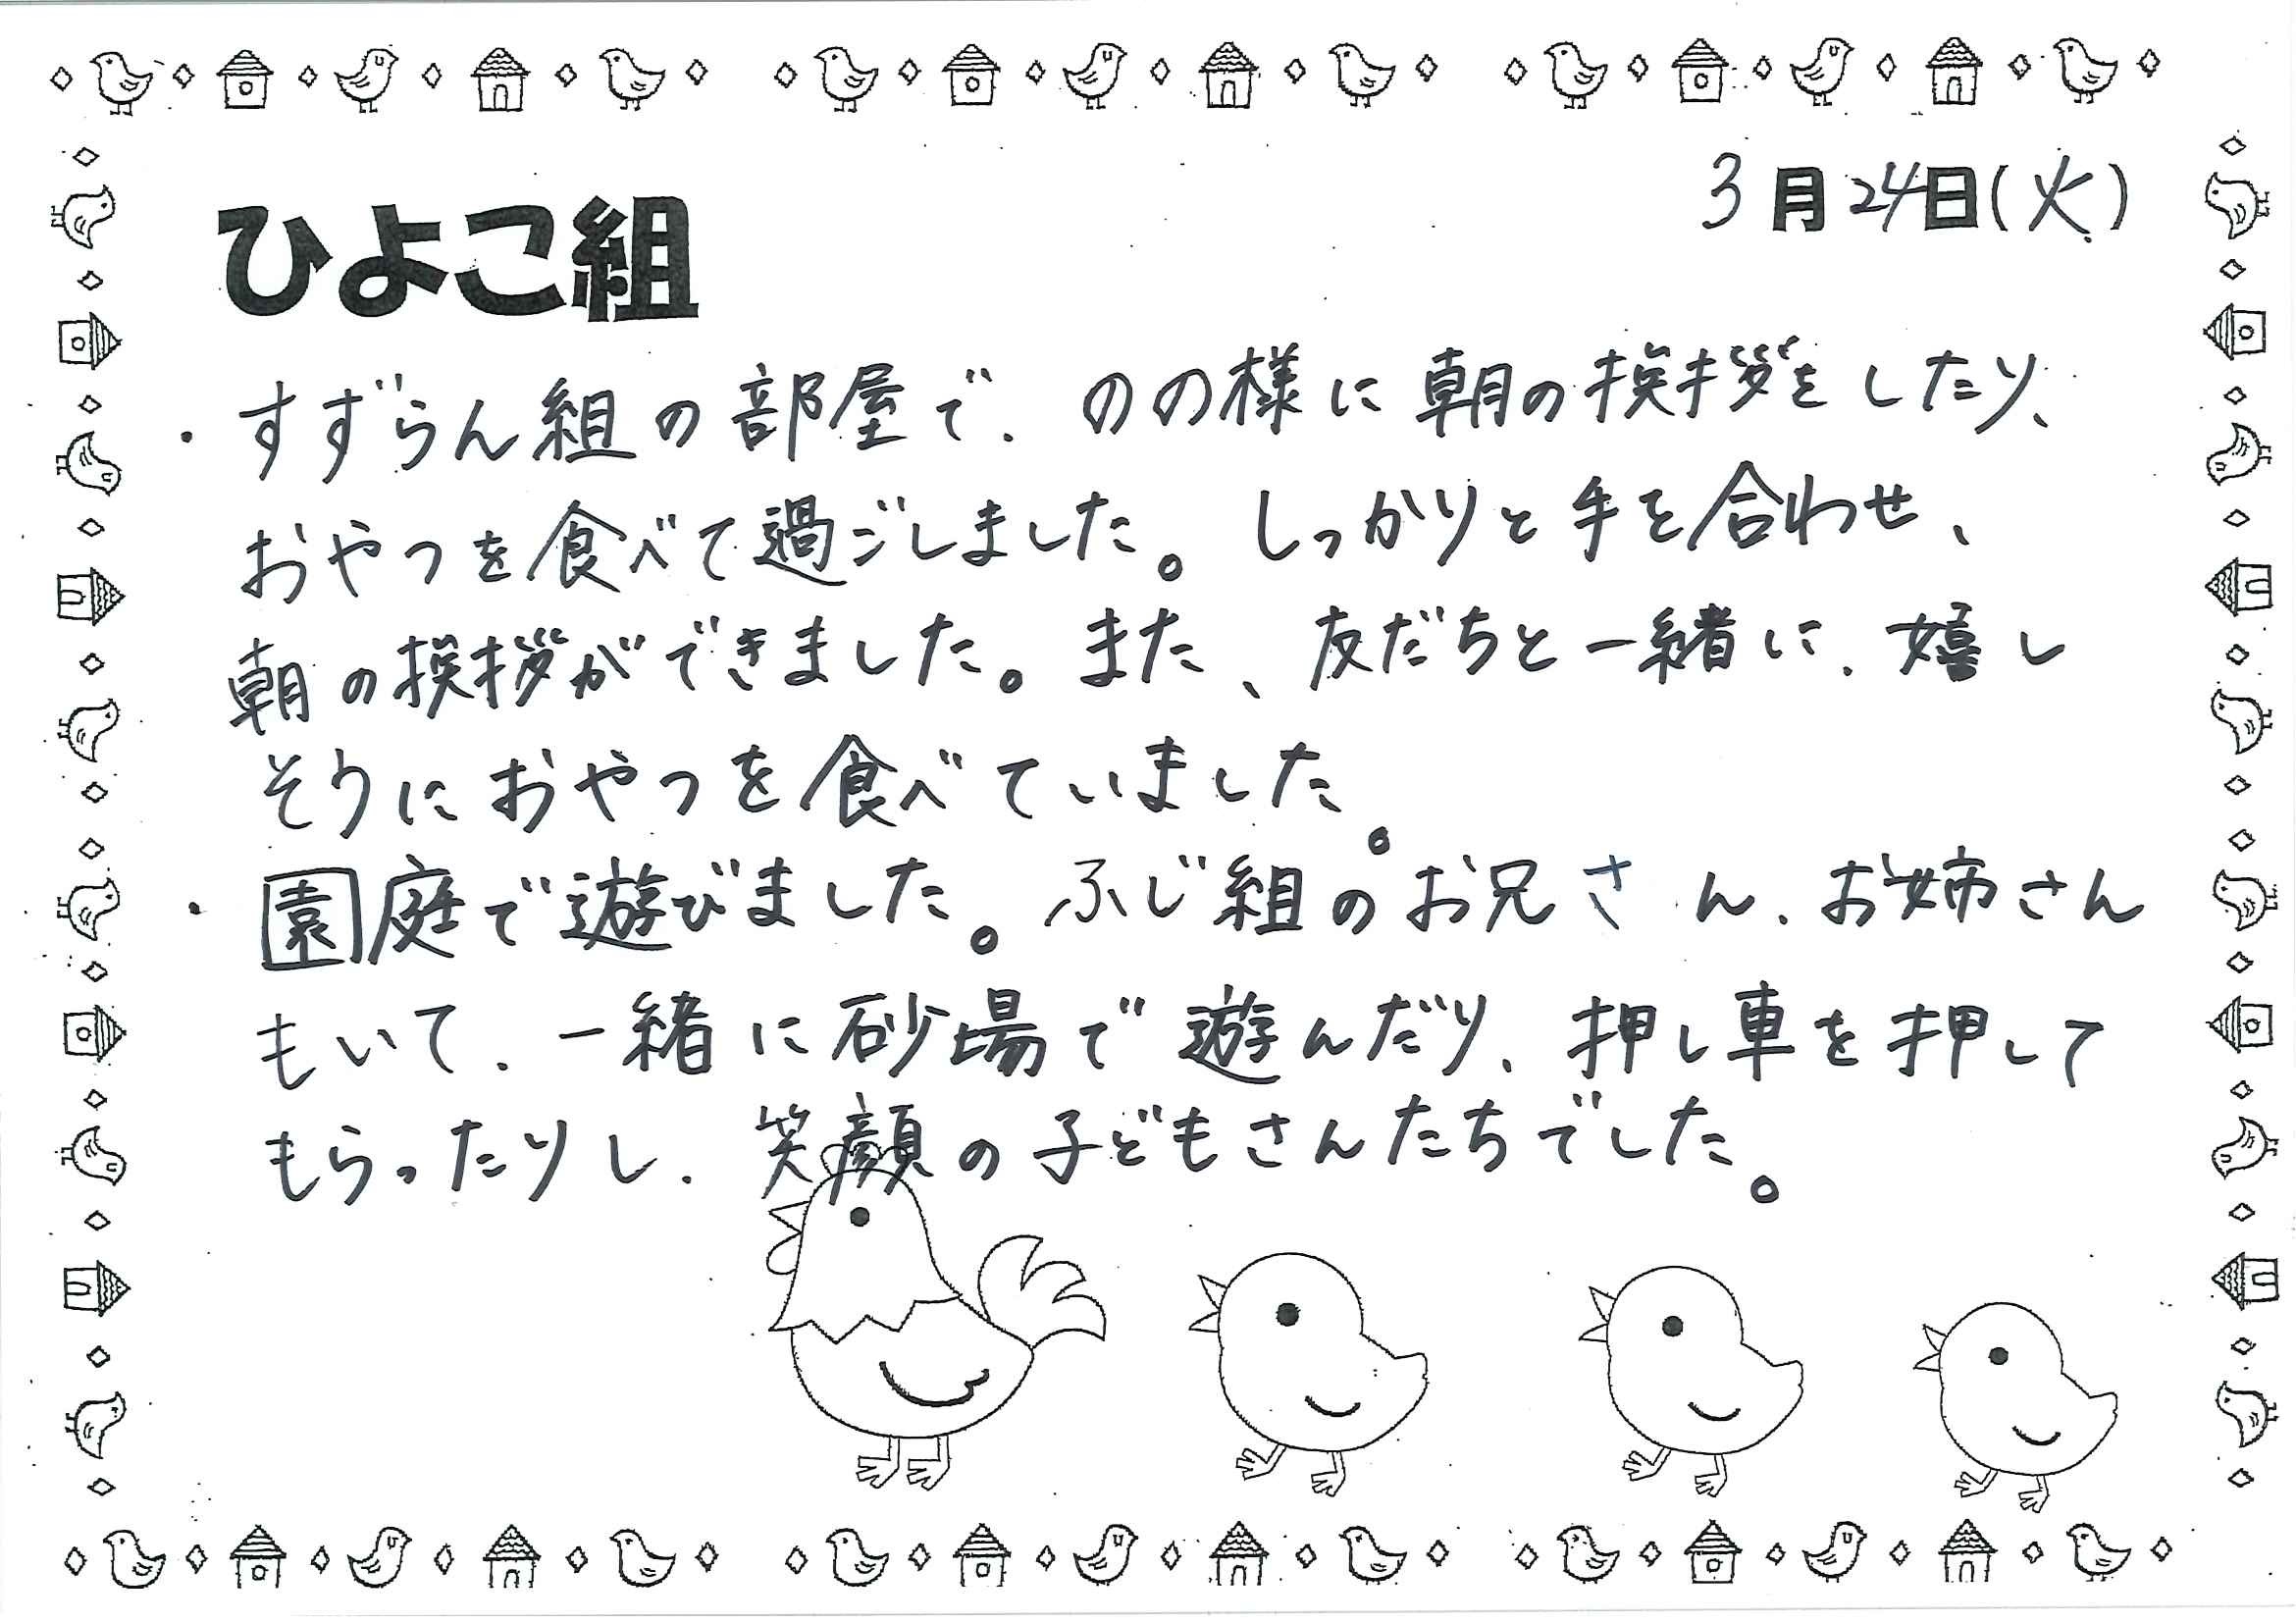 3月24日(火)
ひよこ組
・すずらん組の部屋で、のの様に朝の挨拶をしたり、
おやつを食べて過ごしました。しっかりと手を合わせ、
朝の挨拶ができました。また、友だちと一緒に、嬉し
そうにおやつを食べていました。
・園庭で遊びました。ふじ組のお兄さん、お姉さん
もいて、一緒に砂場で遊んだり、押し車を押して
もらったりし、笑顔の子どもさんたちでした。